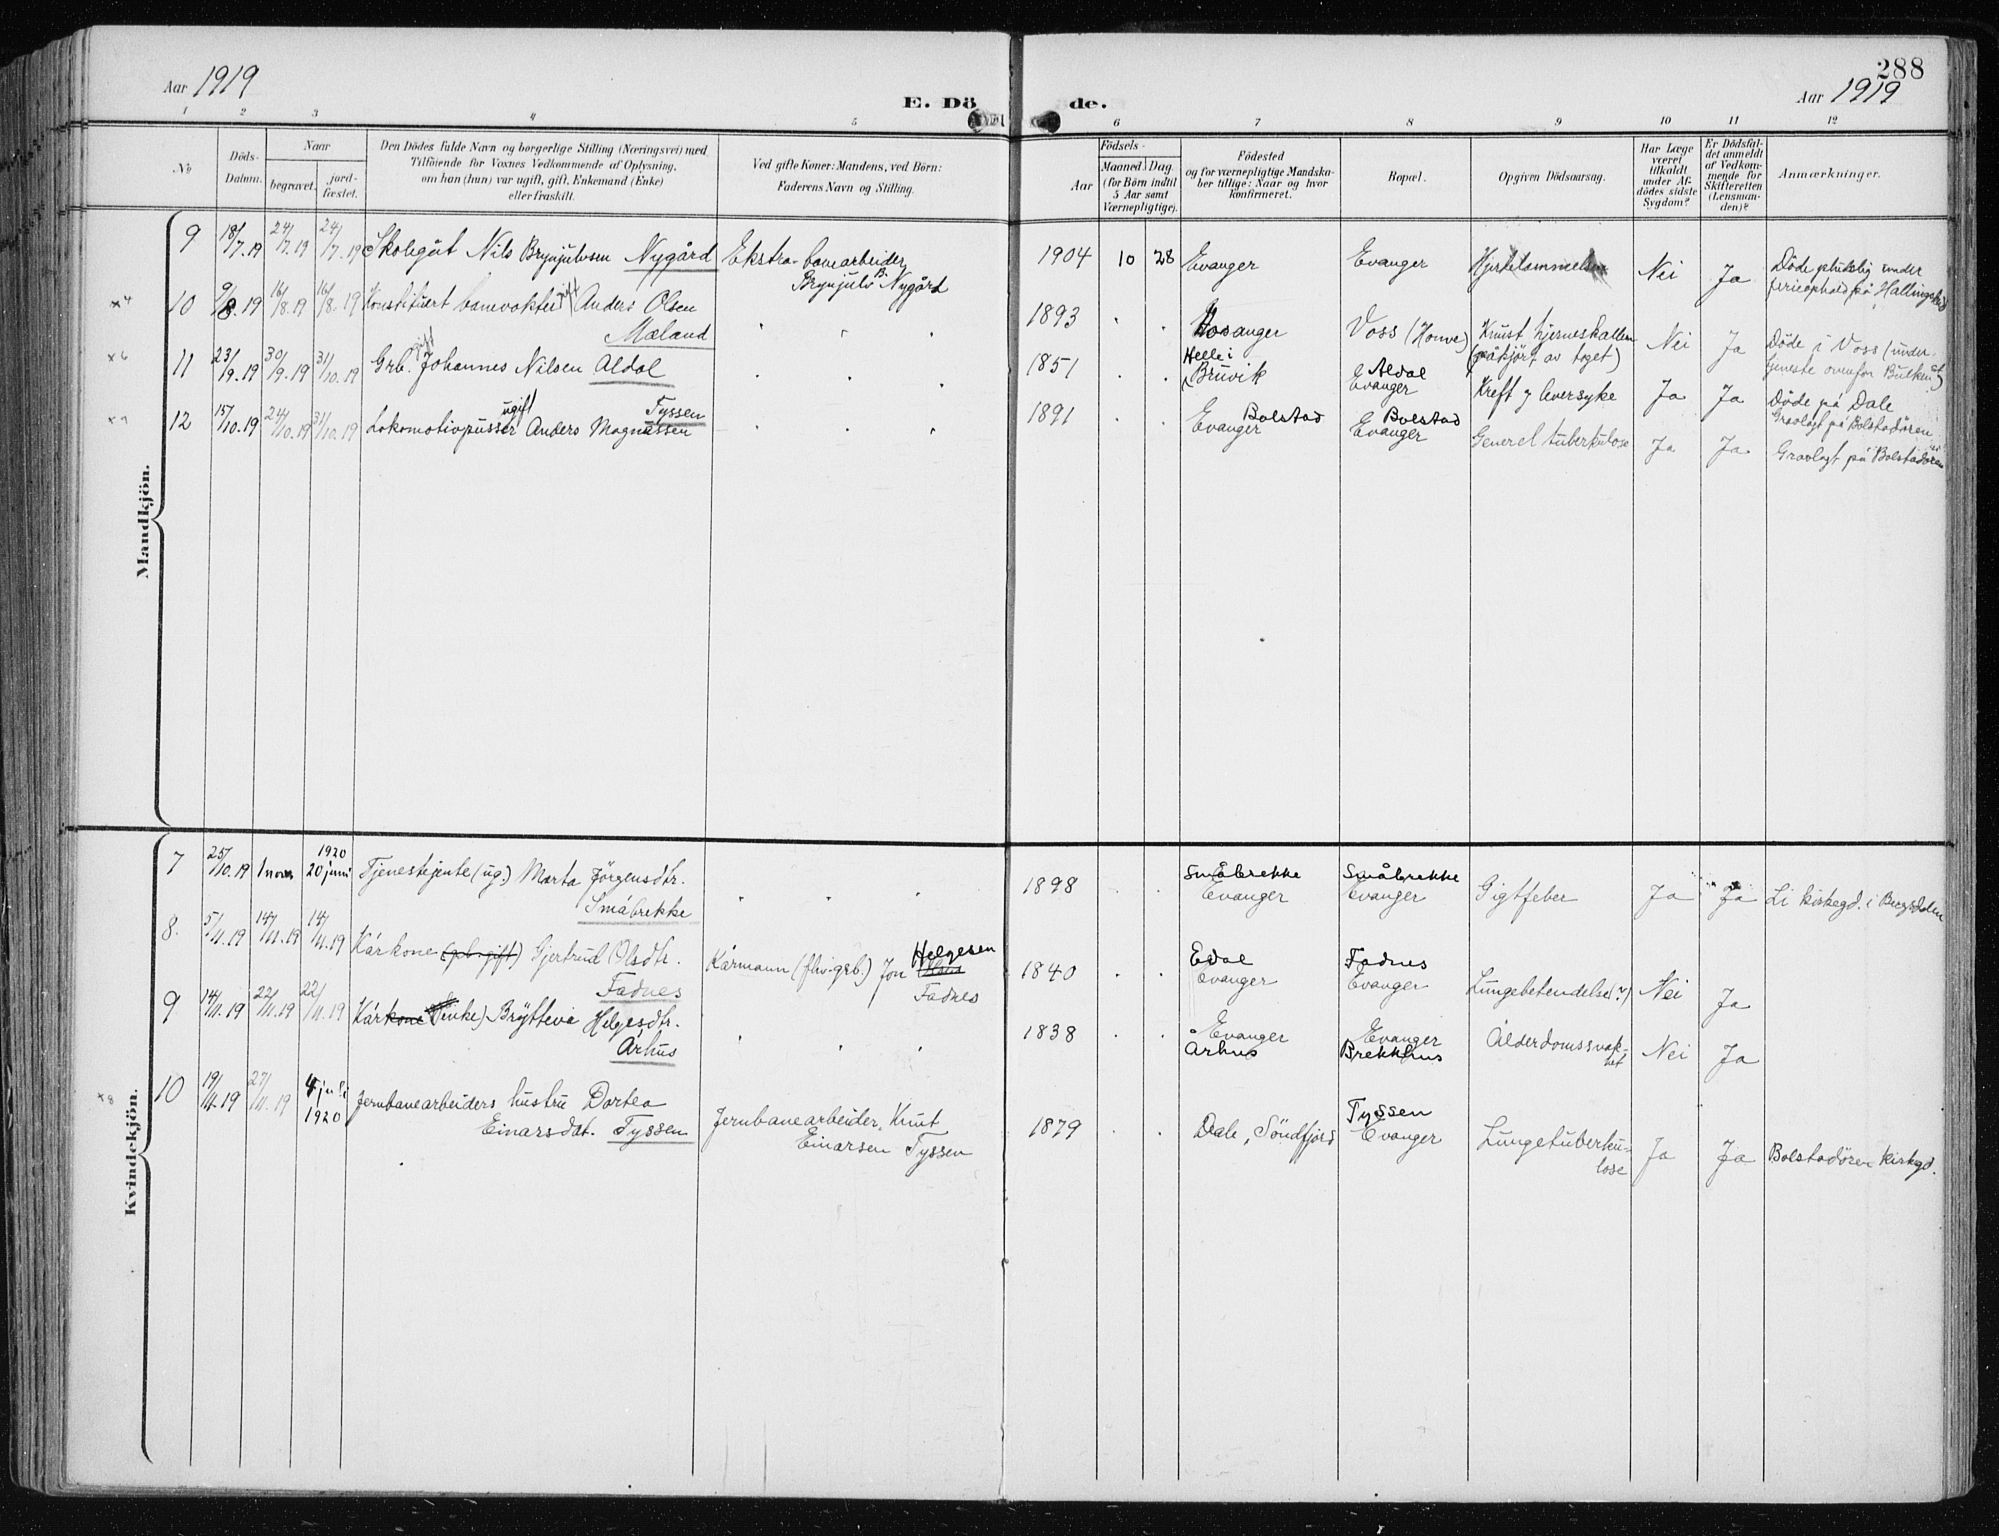 288
Aar 1919
E. Döde.
Aar 1919
1 2 3 4 5 6 7 8 9 10 11 12
No
Döds-Datum.
Naar
begravet.
jord-fæstet.
Den Dödes fulde Navn og borgerlige Stilling (Næringsvei) med
Tilföiende for Voxnes Vedkommende af Oplysning,
om han (hun) var ugift, gift, Enkemand (Enke)
eller fraskilt.
Ved gifte Koner: Mandens, ved Börn:
Faderens Navn og Stilling.
Födsels-
Aar
Maaned
Dag
(for Börn indtil
5 Aar samt
Værnepligtige).
Födested
og for værnepligtige Mandska-
ber tillige: Naar og hvor
konfirmeret.
Bopæl.
Opgiven Dödsaarsag.
Har Læge
været
tilkaldt
under Af-
dödes sidste
Sygdom?
Er Dödsfal-
det anmeldt
af Vedkom-
mende for
Skifteretten
(Lensman-
den)?
Anmærkninger.
Mandkjön.
9 18/7.19 24/7.19 24/7.19 Skolegut Nils Brynjulvsen Nygård Ekstra-banearbeider
Brynjulv B. Nygård
1904 10 28 Evanger Evanger Hjertelammelse Nei Ja Döde plutselig under
ferieophold på Hallingskeid
x4 10 9/8.19 16/8.19 16/8.19 Konstituert banevokter gift Anders Olsen
Mæland
1893 . . Hosanger Voss (Honve) Knust hjerneskallen
(påkjört av toget) Nei Ja Döde i Voss (under
tjeneste ovenfor Bulken st)
x6 11 23/9.19 30/9.19 31/10.19 Grb. gift Johannes Nilsen Aldal
1851 . . Helle i
Bruvik Aldal
Evanger Kreft i leversyke Ja Ja Döde på Dale
Gravlagt på Bolstadören
x7 12 15/10.19 24/10.19 31/10.19 Lokomotivpusser ugift Anders Magnussen Tyssen
1891 . . Bolstad
Evanger Bolstad
Evanger Generel tuberkulose Ja Ja Gravlagt på Bolstadören
Kvindekjön.
7 25/10.19 1 nov 1920
20 juni Tjenestejente (ug.) Marta Jörgensdtr.
Småbrekke
1898 . . Småbrekke
Evanger Småbrekke
Evanger Gigtfeber Ja Ja Li kirkegd. i Bergsdalen
8. 5/11.19 14/11.19 14/11.19 Kårkone (gb. gift) Gjertrud Olsdtr.
Fadnes
Kårmann (fhv. grb.) Jon Helgesen
Fadnes
1840 . . Edal
Evanger Fadnes
Evanger Lungebetendelse (?) Nei Ja
9 14/11.19 22/11.19 22/11.19 Kårkone (enke) Brytteva Helgesdtr.
Århus
1838 . . Evanger
Århus Evanger
Brekkhus Alderdomssvak-
het Nei Ja
x8 10 19/11.19 27/11.19 4 juli
1920 Jernbanearbeiders hustru Dortea
Einarsdat. Tyssen
Jernbanearbeider Knut
Einarsen Tyssen
1879 . . Dale, Söndfjord Tyssen
Evanger Lungetuberku-
lose Ja Ja Bolstadören kirkegd.